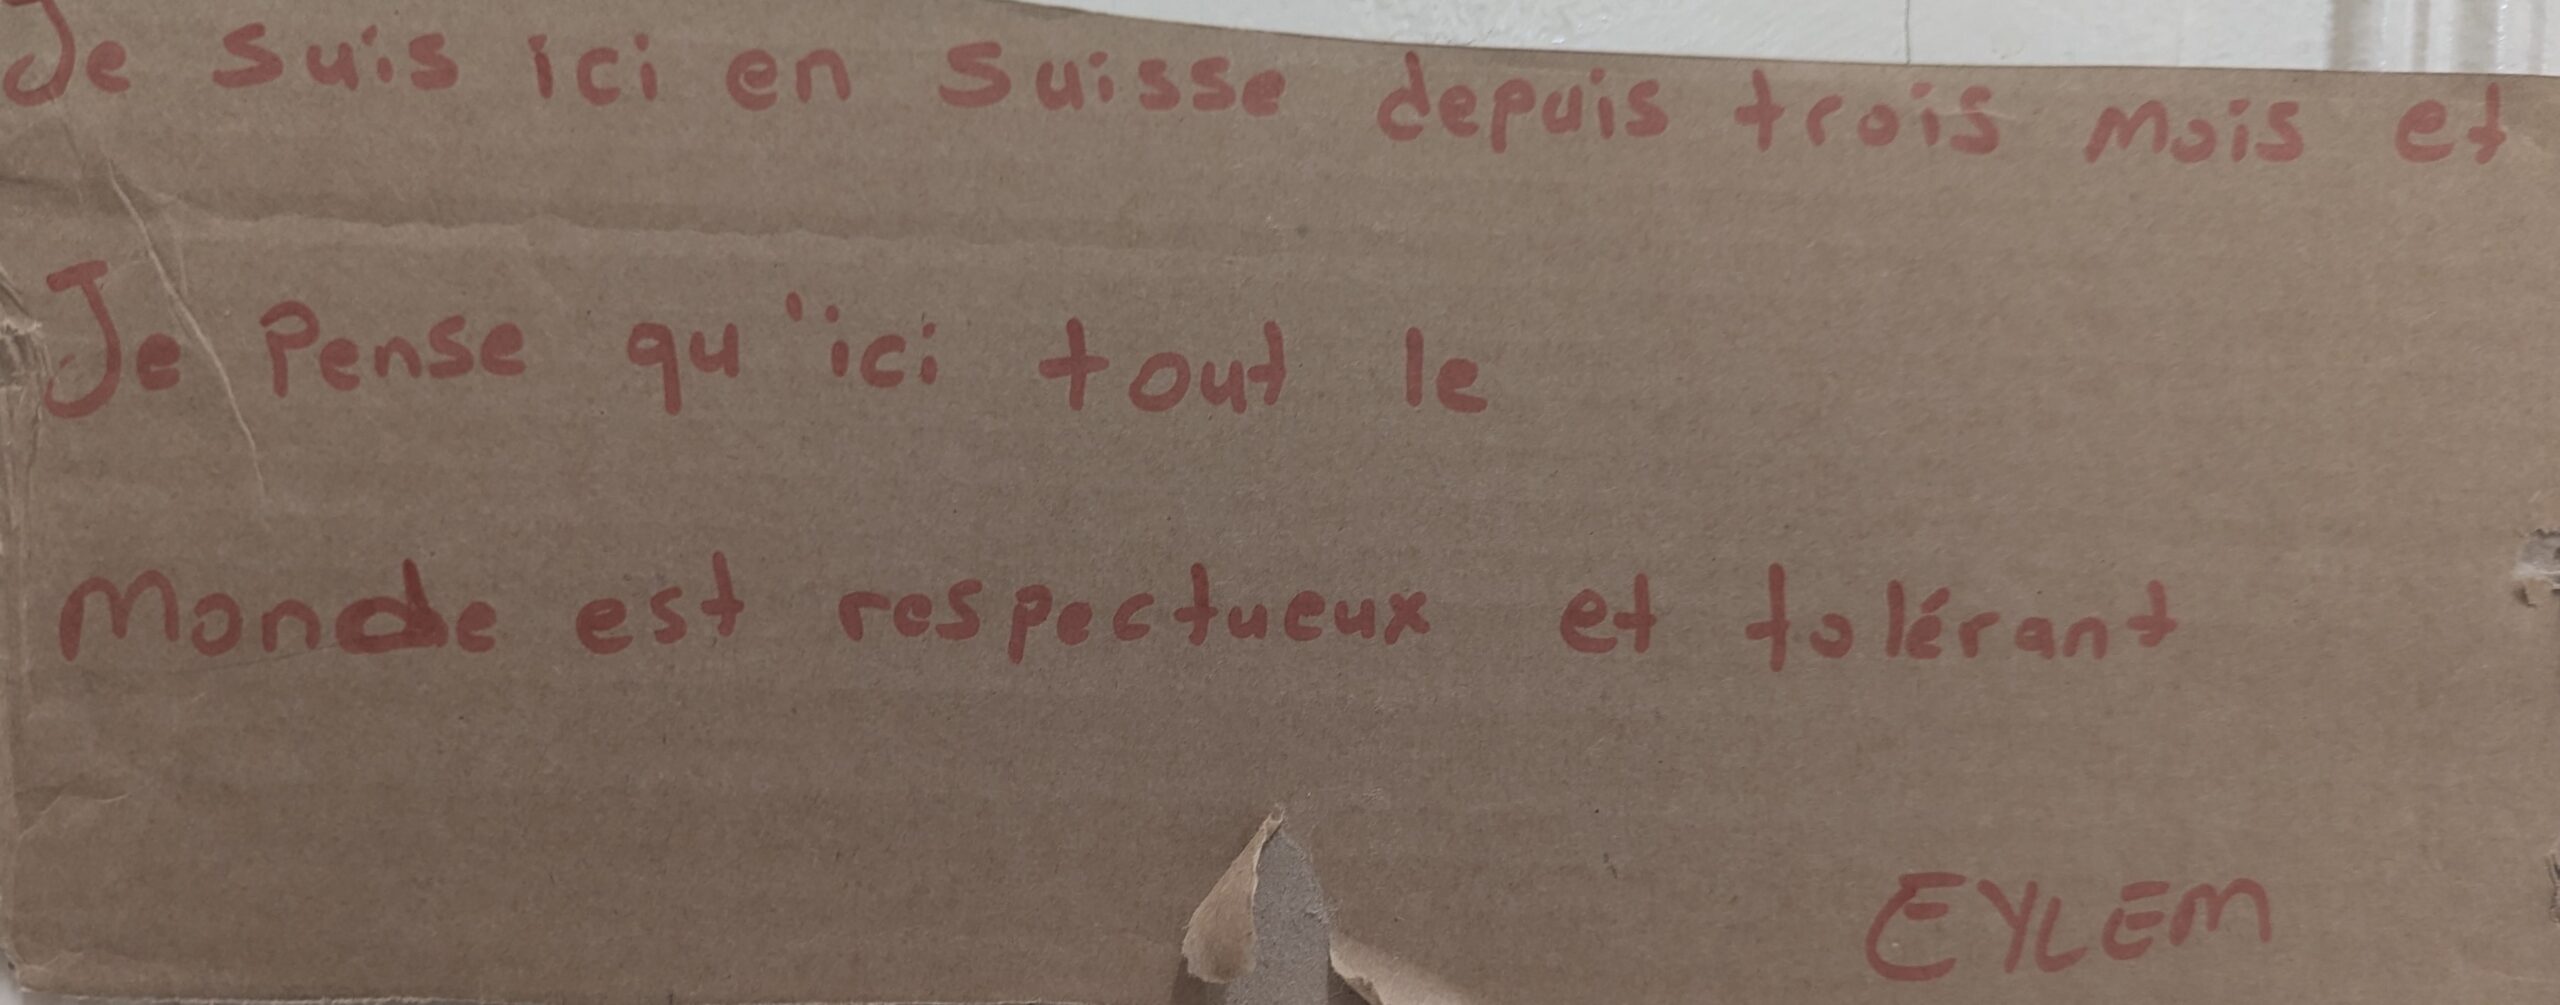 Je suis ici en suisse depuis trois mois et
Je pense qu'ici tout le
Monde est respectueux et tolérant
EYLEM